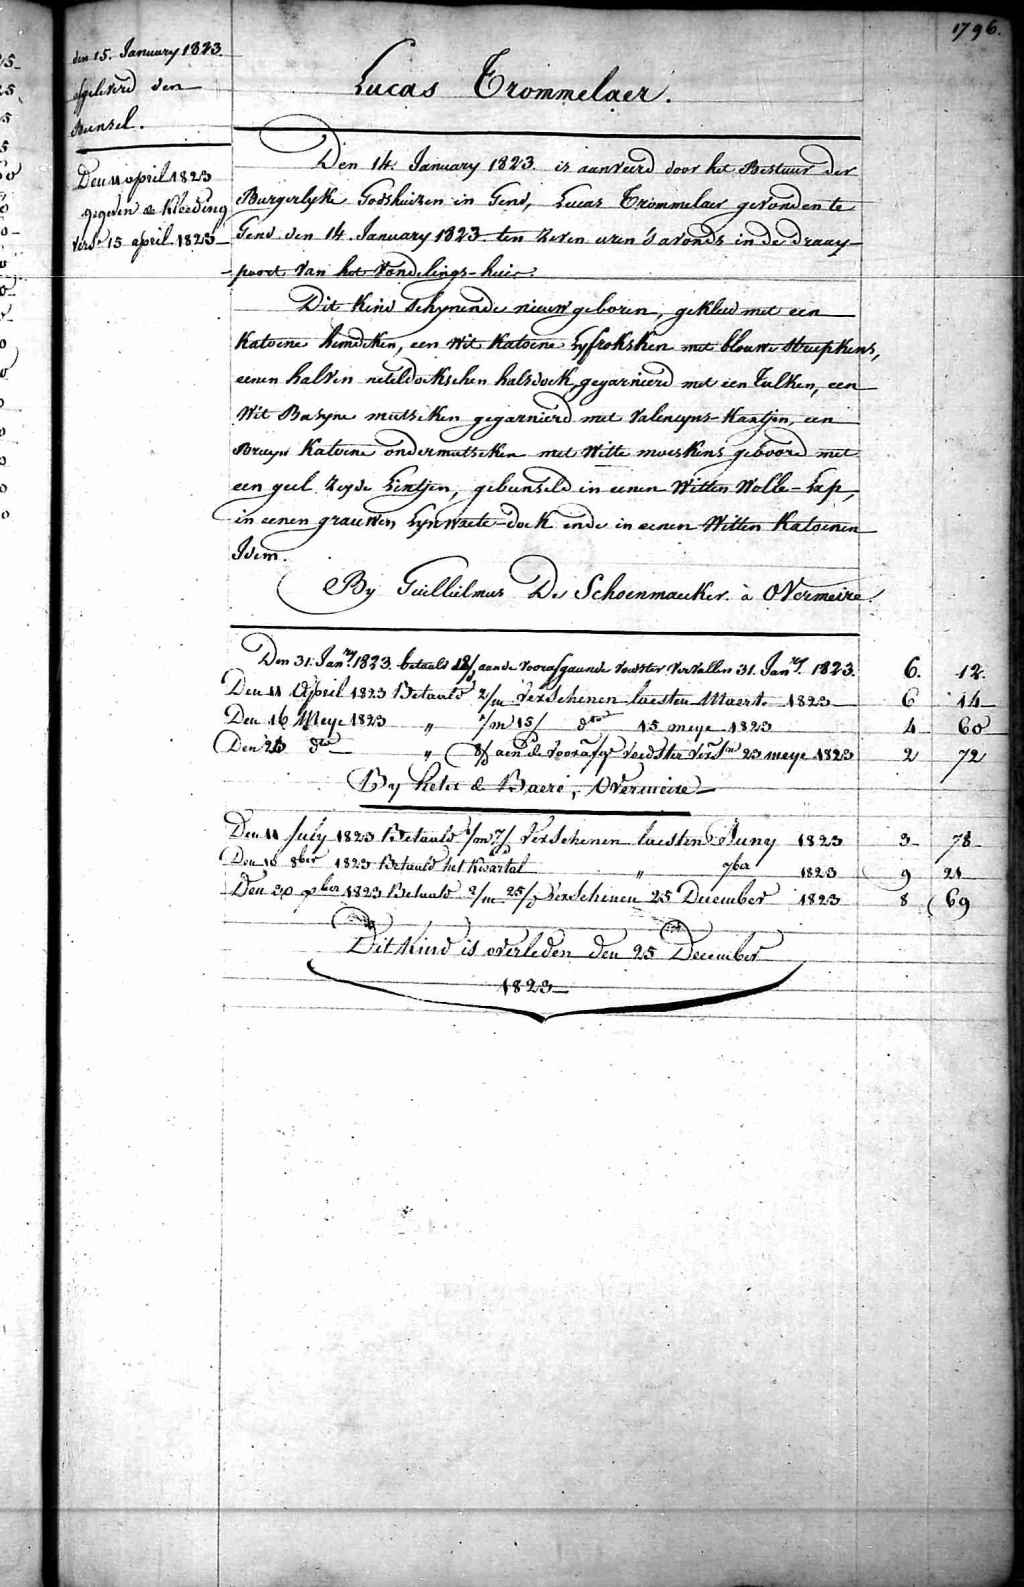 1796.
den 15. January 1823.
afgeleverd den
Bunsel.
Den 11 april 1823
gegeven de Kleeding
vers. 15 april 1823
Lucas Trommelaer.
Den 14. January 1823. is aanveird door het Bestuur der
Burgerlyke Godshuizen in Gend, Lucas Trommelaer gevonden te
Gend den 14. January 1823 ten zeven uren 's avonds in de draay
poort van het vondelings-huis.
Dit Kind schynende nieuw geboren, gekleed met een
Katoene hemdeken, een wit Katoene Lyfroksken met blouwe streepkens,
eenen halven neteldoekschen halsdoek, gegarnierd met een Tulken, een
Wit Basyne mutseken gegarnierd met valencyns-Kantjen, een
Bruyn Katoene ondermutseken met Witte moeskens geboord met
een geel zeyde Lintjen, gebunseld in eenen Witten Wolle-Lap,
in eenen grauwen Lynwaete-doek ende in eenen Witten Katoenen
Idem.
By Guillielmus De Schoenmaeker à Overmeire.
Den 31. Jan.ry 1823 betaald 18/ aan de voorafgaande voedster vervallen 31. Jan.ry 1823. 6. 12.
Den 11 April 1823 Betaald 2/m verschenen laesten Maert 1823 6 14
Den 16 Meye 1823 " 1/m 15/ do 15 meye 1823 4 60
Den 23 do " 8/ aen de voorafge voedster vers.en 23 meye 1823 2 72
By Peter de Baere, Overmeire
Den 11 July 1823 Betaald 1/m 7/ verschenen laesten Juny 1823 3 78
Den 10 8ber 1823 Betaald het Kwartal " 7ber 1823 9 21
Den 30 xber 1823 Betaald 2/m 25/ verschenen 25 December 1823 8 69
Dit Kind is overleden den 25 December
1823